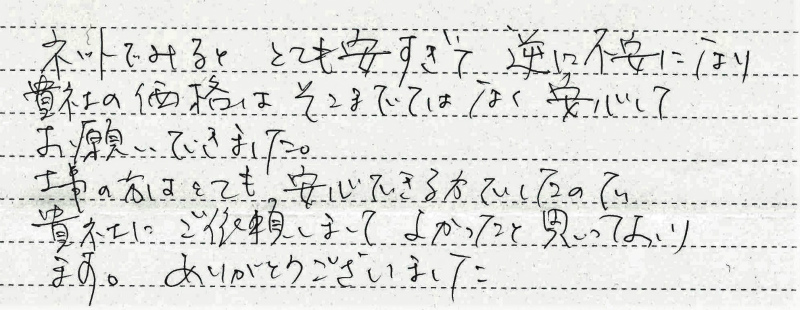 ネットでみると とても安すぎて 逆に不安になり
貴社の価格は そこまでではなく 安心して
お願いできました。
工事の方はとても 安心できる方でしたので
貴社に ご依頼しまして よかったと思っており
ます。 ありがとうございました